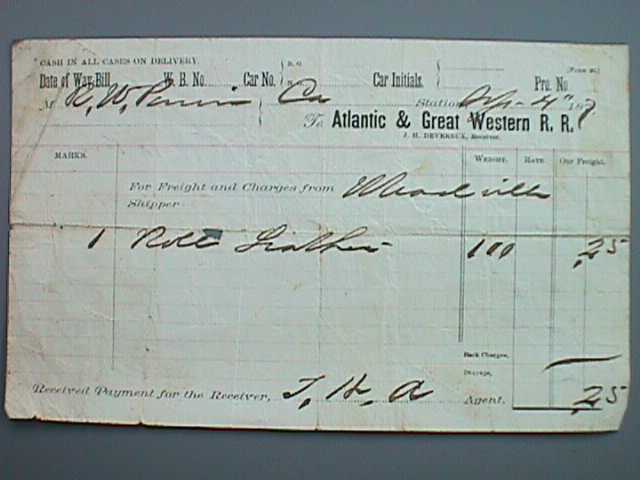 CASH IN ALL CASES ON DELIVERY.
Date of Way-Bill W. B. No. Car No. Car Initials. Pro. No.
M R. W. Co Station, 4" 187
To Atlantic & Great Western R. R.
J. H. DEVEREUX, Receiver.
MARKS. WEIGHT. RATE. OUR FREIGHT.
For Freight and Charges from Meadville
Shipper
1 Roll Leather 100 .25
Back Charges,
Storage,
Received Payment for the Receiver, J, H, A Agent. .25